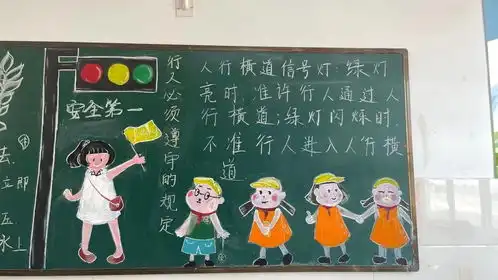 去
立即
五
水上
安全第一
行人必须遵守的规定
人行横道信号灯:绿灯
亮时,准许行人通过人
行横道;绿灯闪烁时,
不准行人进入人行横
道.